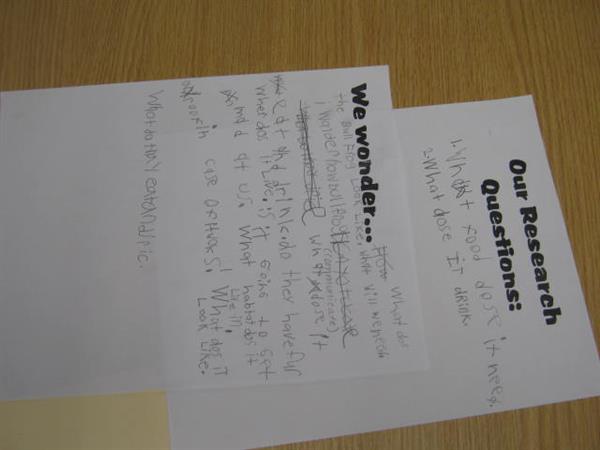 Our Research
Questions:
1. What food dose it need.
2. What dose IT drink.
We wonder...
What dos
the Bull frog Look Like. what will we need
i wonder how bull frog
(communicate)
what dose it
eat and drink. do they have fur
Wher dos it Live. is it going to get
mad at us. What habitat dos it
Live in.
in case of attacks! What dos IT
Look Like.
What do thay eat and